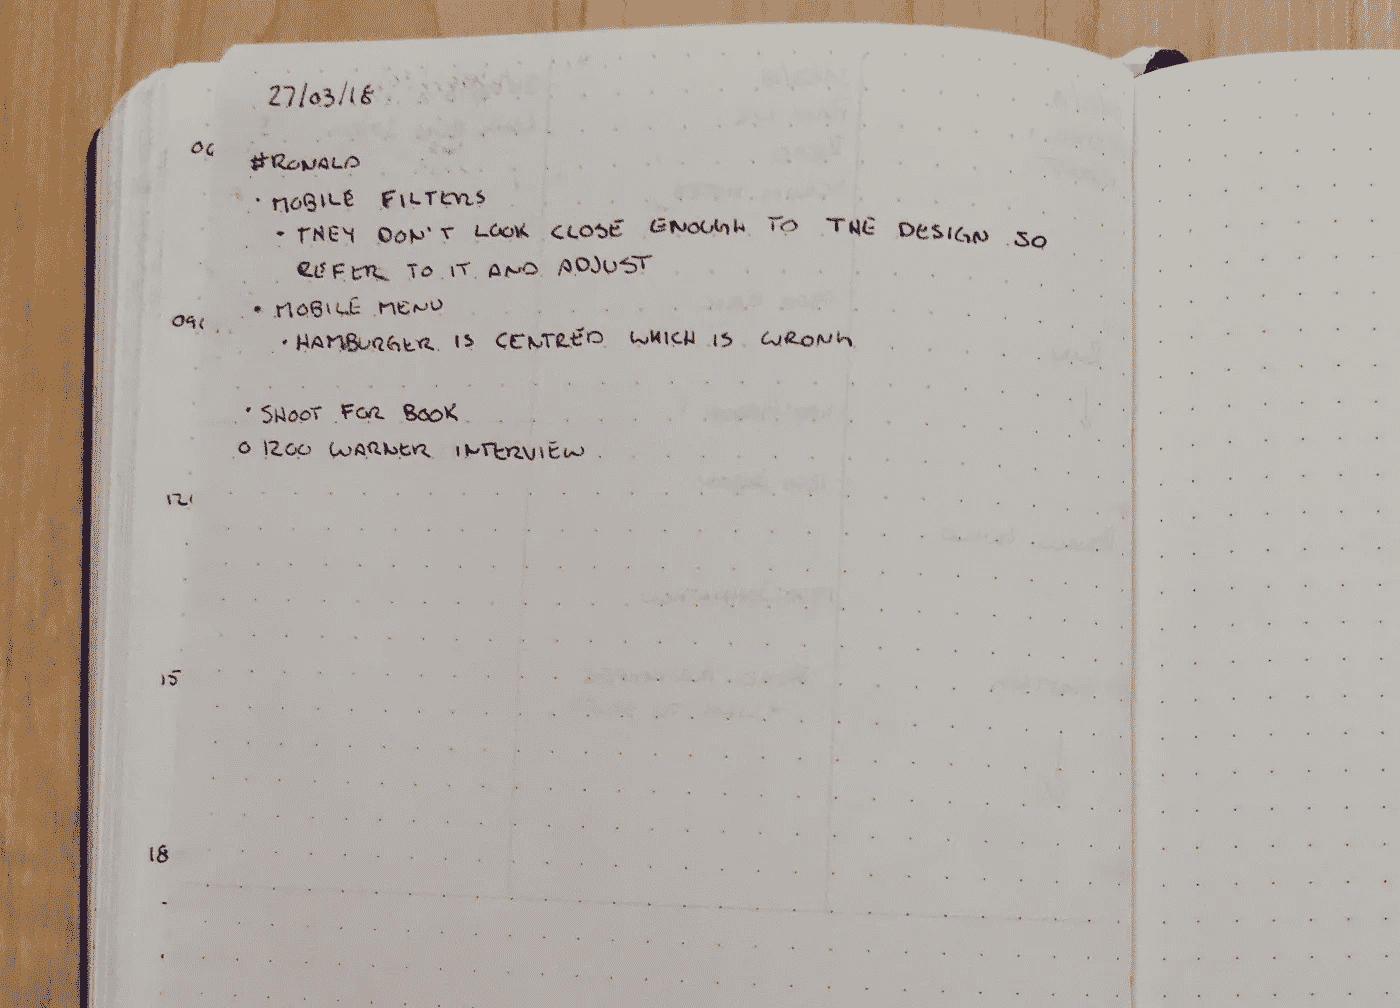 27/03/18
#RONALD
· MOBILE FILTERS
· THEY DON'T LOOK CLOSE ENOUGH TO THE DESIGN SO
REFER TO IT AND ADJUST
· MOBILE MENU
· HAMBURGER IS CENTRED WHICH IS WRONG
· SHOOT FOR BOOK
O 1200 WARNER INTERVIEW
06
09
12
15
18